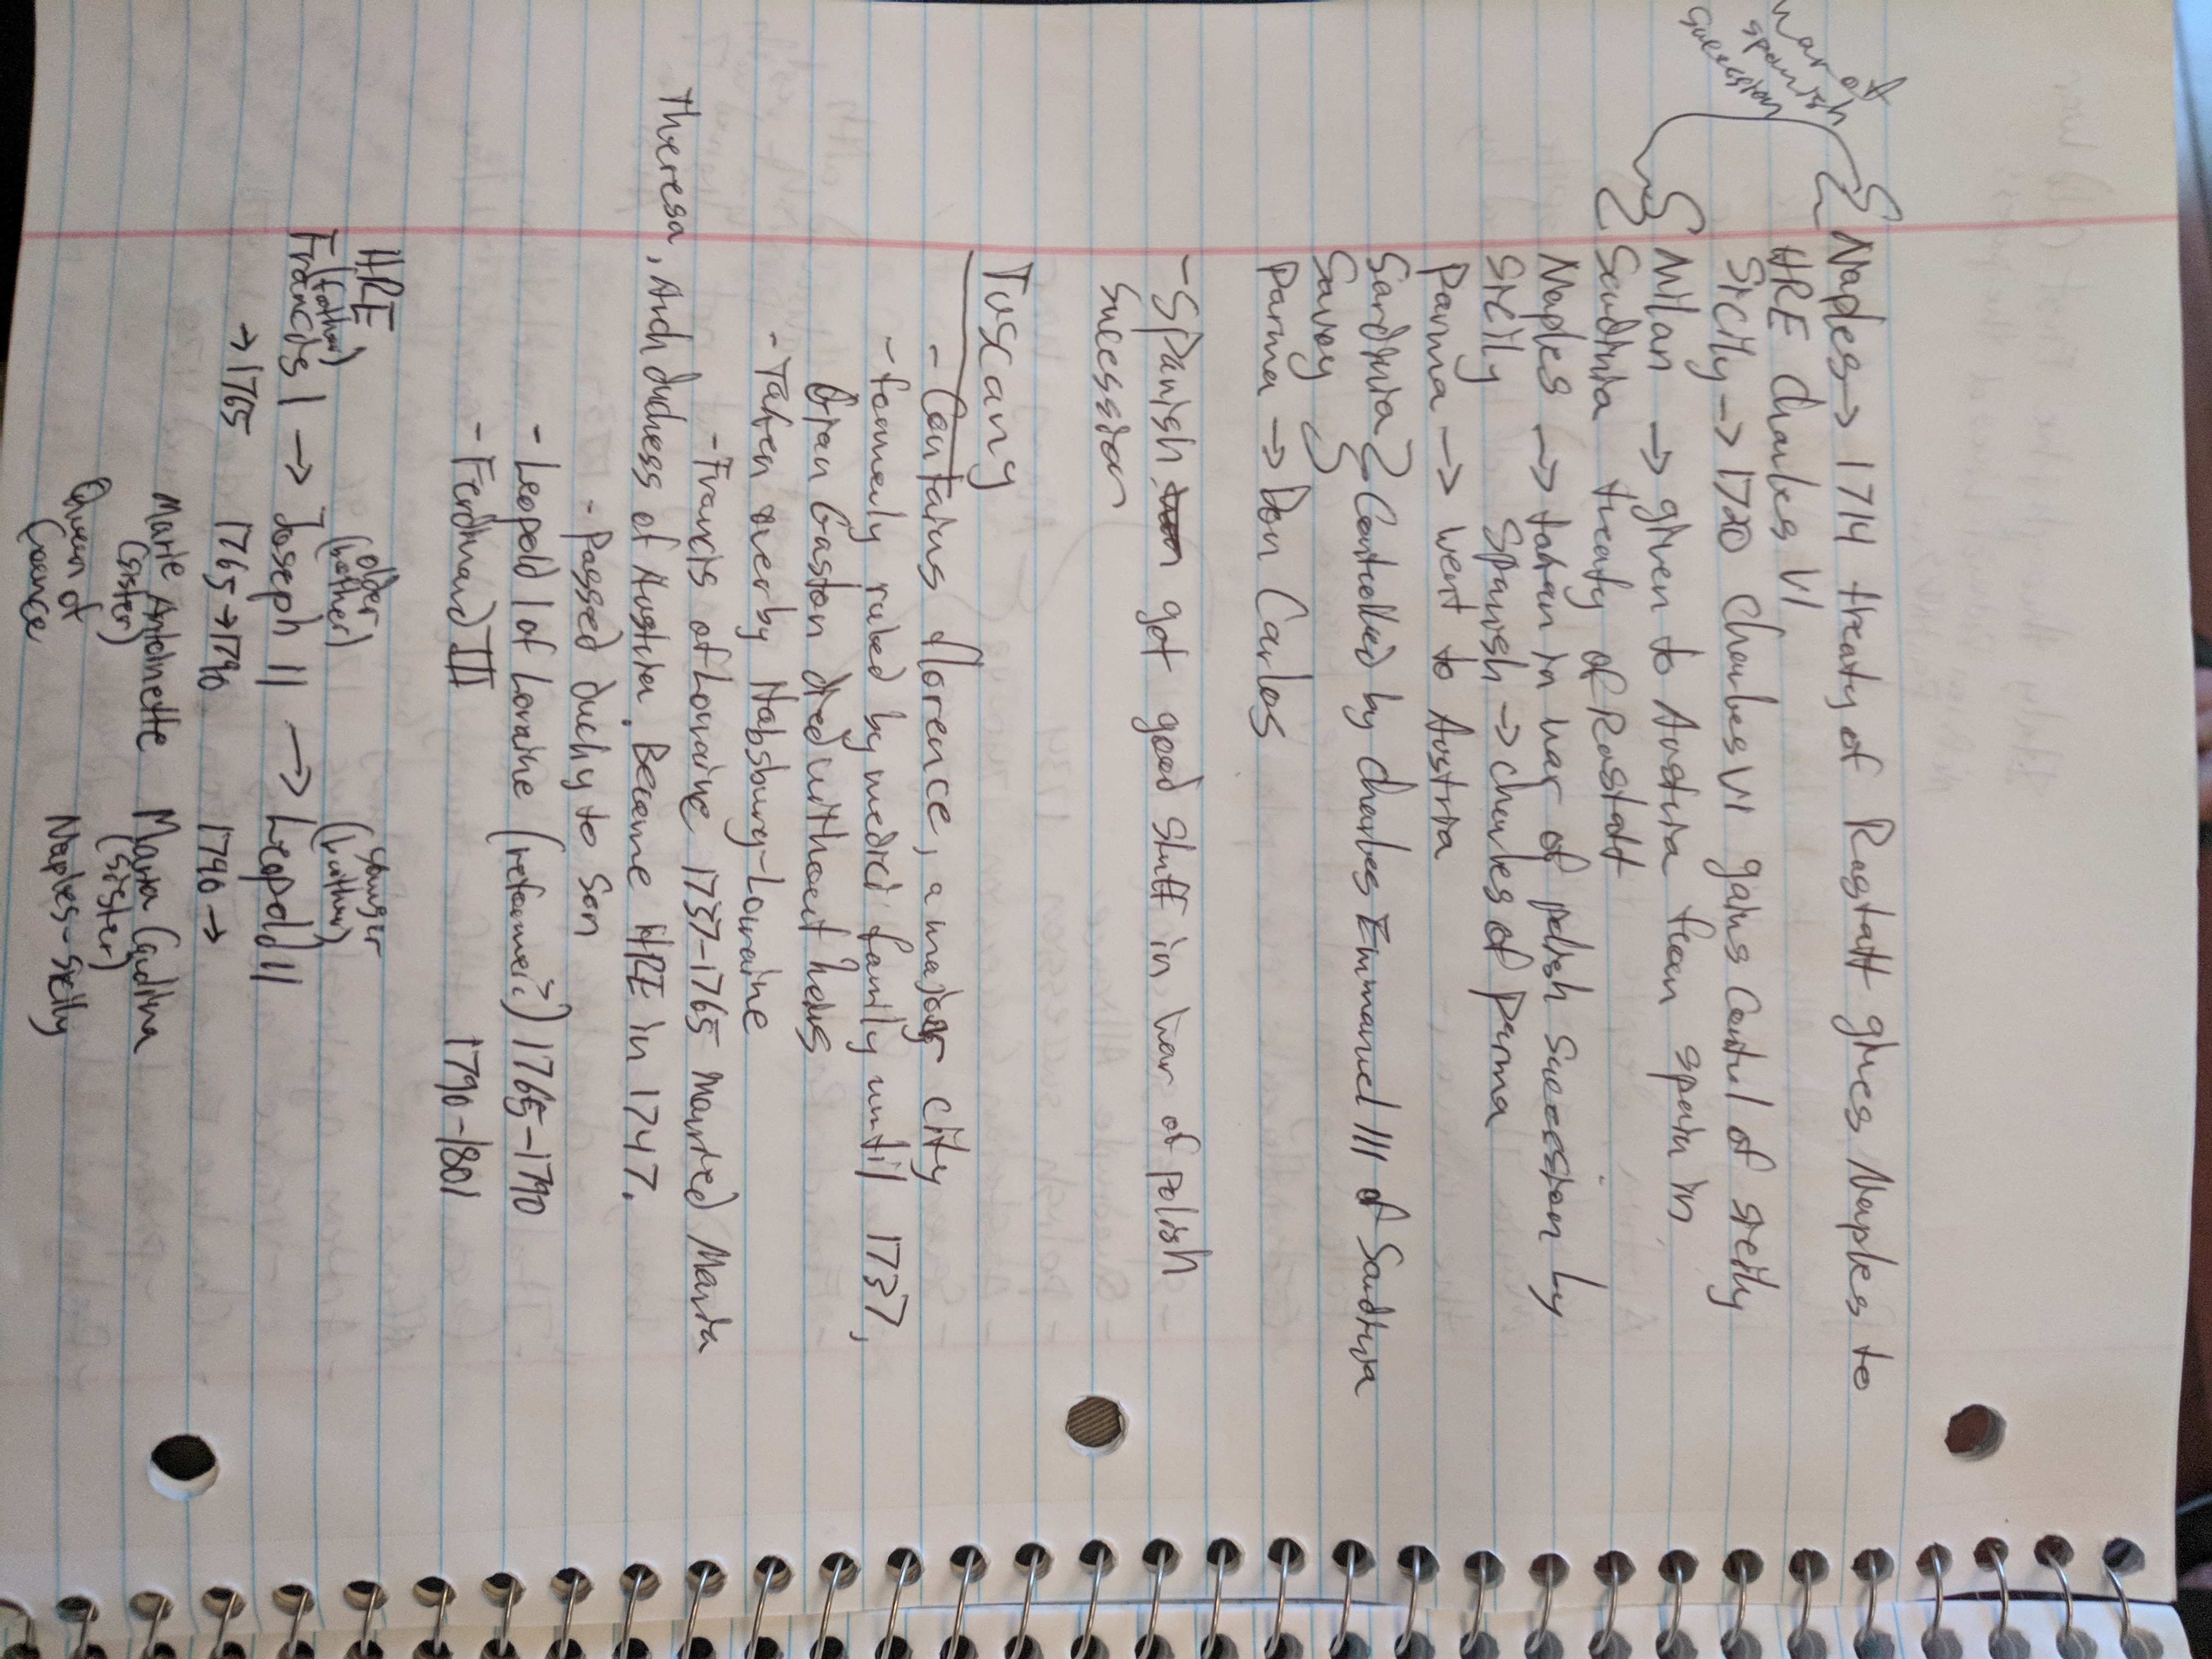 war of
spanish
succession
Naples → 1714 treaty of Rastatt gives Naples to
HRE Charles VI
Sicily → 1720 Charles VI gains Control of sicily
Milan → given to Austria from spain in
Sardinia treaty of Rastatt
Naples → taken in war of polish succession by
Sicily Spanish → Charles of parma
Parma → went to Austria
Sardinia } Controlled by Charles Emmanuel III of Sardinia
Savoy
Parma → Don Carlos
- Spanish got good stuff in war of polish
Sucession
Tuscany
- Contains florence, a major city
- formerly ruled by medici family until 1737,
Gian Gaston died without heirs
- Taken over by Habsburg-Lorraine
- Francis of Lorraine 1737-1765 Married Maria
Theresa, Archduchess of Austria. Became HRE in 1747.
- Passed duchy to son
- Leopold I of Lorraine (reformer?) 1765-1790
- Ferdinand III 1790-1801
HRE
(father) (older brother) (younger brother)
Francis I → Joseph II → Leopold II
→1765 1765→1790 1790→
Marie Antoinette Maria Carolina
(sister) (sister)
Queen of Naples-Sicily